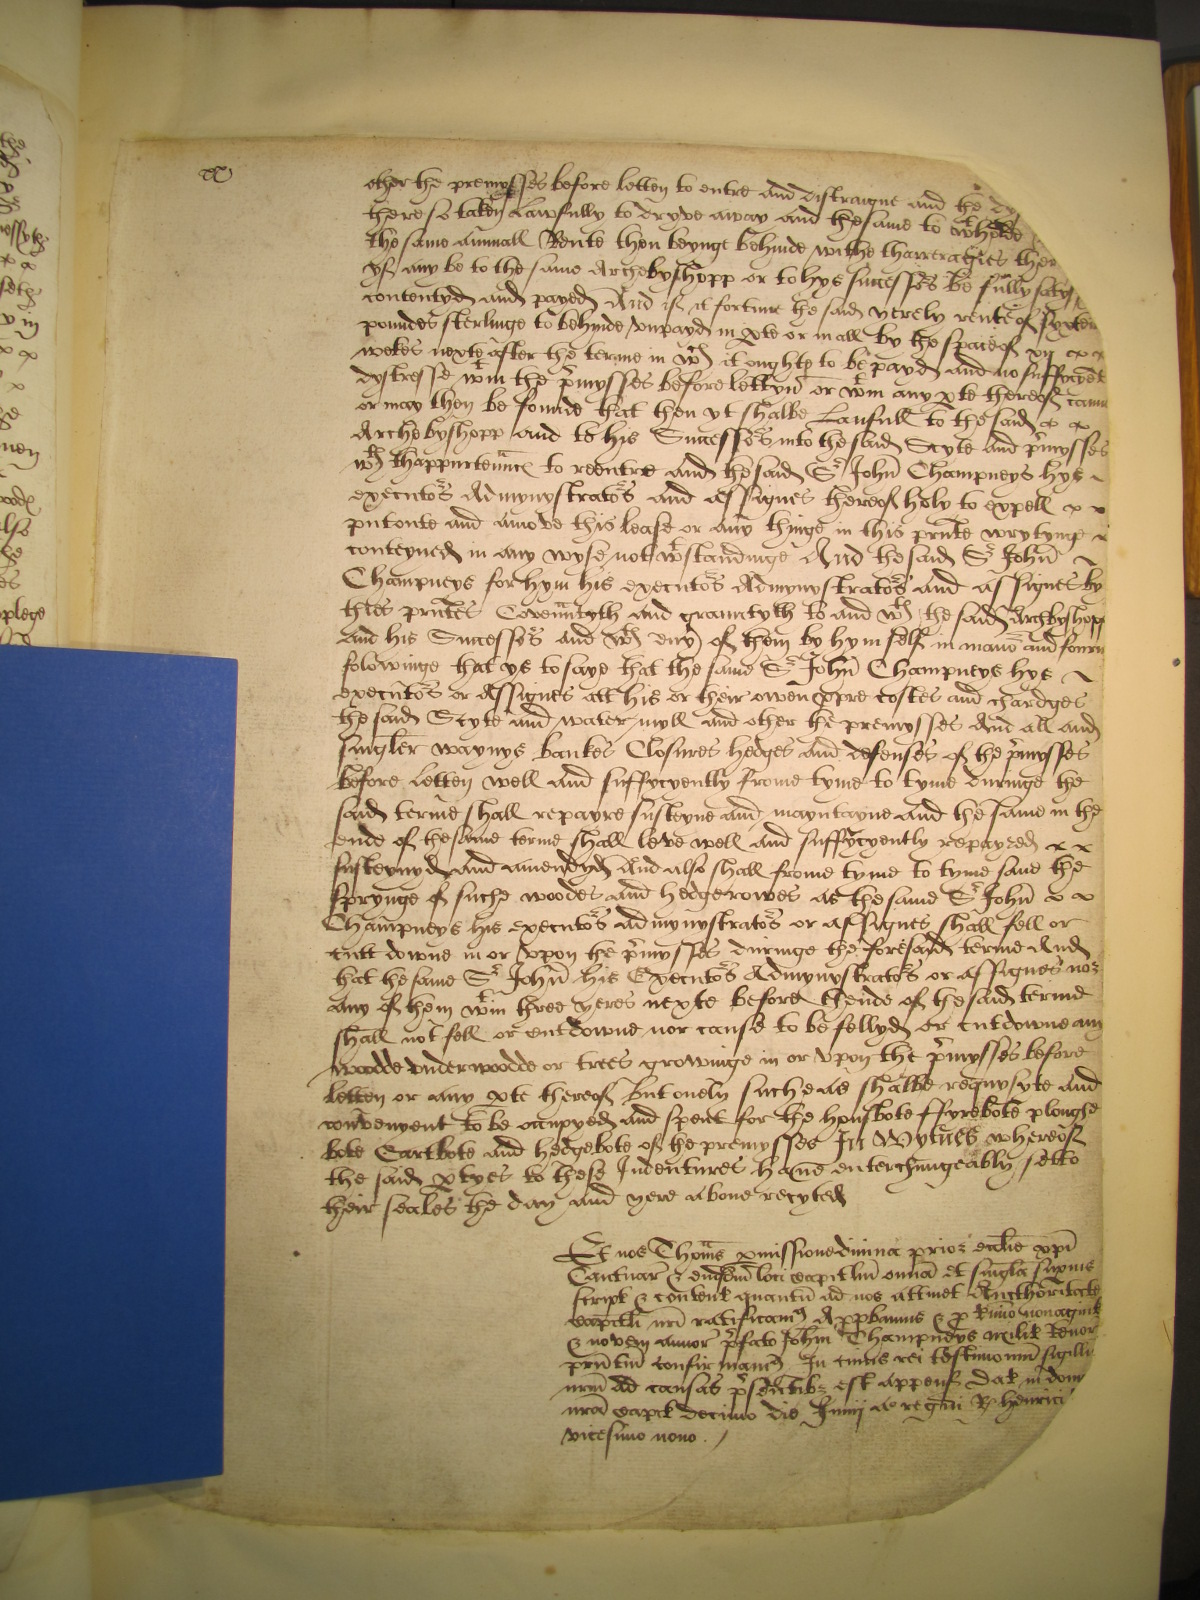 other the premysses before letten to entre and distraigne and the dy
there so taken Lawfully to dryve away and the same to wtholde
the same annuall Rente then beynge behinde withe tharreragies ther
yf any be to the same Archebyshopp or to hys successors be fully satys
contentyd and payed And if it fortune the said yerely rente of syxten
poundes sterlinge to behynde vnpayd in pte or in all by the space of xij
wekes nexte after the terme in wch it oughte to be payd and no suffycyent
dystresse wtin the pmysses before lettyn or wtin any pte thereof canne
or may then be founde that then yt shalbe Laufull to the said
Archebyshopp and to his Successors into the said Scyte and pmysses
wth thappurtennce to reentre and the said Sr John Champneys hys
executors Admynystrators and Assignes thereof holy to expell
put oute and amove this lease or any thinge in this pnte wrytynge
conteyned in any wyse not wtstandinge And the said Sr John
Champneys for hym his executors Admynystrators and assignes by
thes pntes Covenntyth and grauntyth to and wth the said Archbyshopp
and his Successors and wth eny of them by hym self in maner and fourm
folowinge that ys to saye that the same Sr John Champneys hys
executors or Assignes att his or their owen ppre costes and chardges
the said Scyte and water myll and other the premysses And all and
singler waynys bankes Closures hedges and defenses of the pmysses
before letten well and suffycyently frome tyme to tyme duringe the
said terme shall repayre susteyne and mayntayne and the same in the
ende of the same terme shall leve well and suffycyently repayred
susteynyd and amendyd And also shall frome tyme to tyme save the
sprynge of suche woodes and hedgerowes as the same Sr John
Champneys his executors admynystrators or assignes shall fell or
cutt downe in or vpon the pmysses duringe the foresaid terme And
that the same Sr John his Executors Admynystrators or assignes nor
any of them wtin three yeres nexte before thende of the said terme
shall not fell or cutdowne nor cause to be fellyd or cutdowne any
woodde vnderwoodde or trees growinge in or vpon the pmysses before
letten or any pte thereof but onely suche as shalbe requysyte and
convenyent to be occupyed and spent for the housbote ffyrebote ploughe
bote Cartbote and hedgebote of the premysses In Wytnes whereof
the said ptyes to these Indentures have enterchungeably sette
their seales the day and yere above recyted
Et nos Thomas pmissione divina prior ecclie xpi
Cantuar & eiusdm loci capitlm omnia et singla supius
script & content quantu ad nos attinet Aucthoritate
capitli nri ratificam Appbamus & p tmino nonagint
& novem annor pfato Johni Champneys milit tenor
pntiu confirmam In cuius rei testimoniu sigillu
nrm ad causas psentibz est appens Dat in domo
nra capit decimo die Junij ao regni R henrici
vicesimo nono